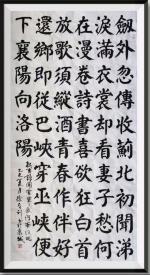 劍外忽傳收薊北初聞涕
淚滿衣裳却看妻子愁何
在漫卷詩書喜欲狂白首
放歌須縱酒青春作伴好
還鄉即從巴峽穿巫峽便
下襄陽向洛陽